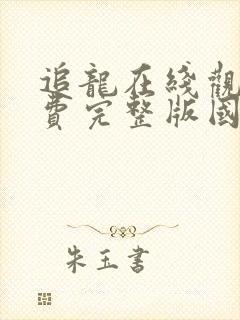 追龍在綫觀
費完整版國
朱玉書